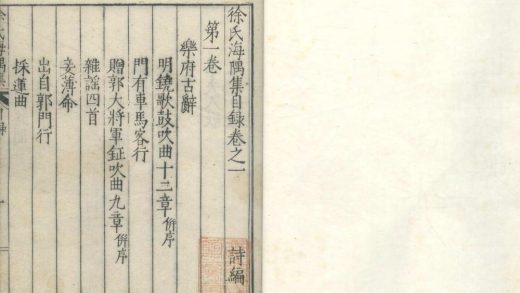 徐氏海隅集目録卷之一
詩編
第一卷
樂府古辭
明鐃歌鼓吹曲十二章併序
門有車馬客行
贈郭大將軍鉦吹曲九章併序
雜謡四首
妾薄命
出自郭門行
採蓮曲
徐氏海隅集
目録